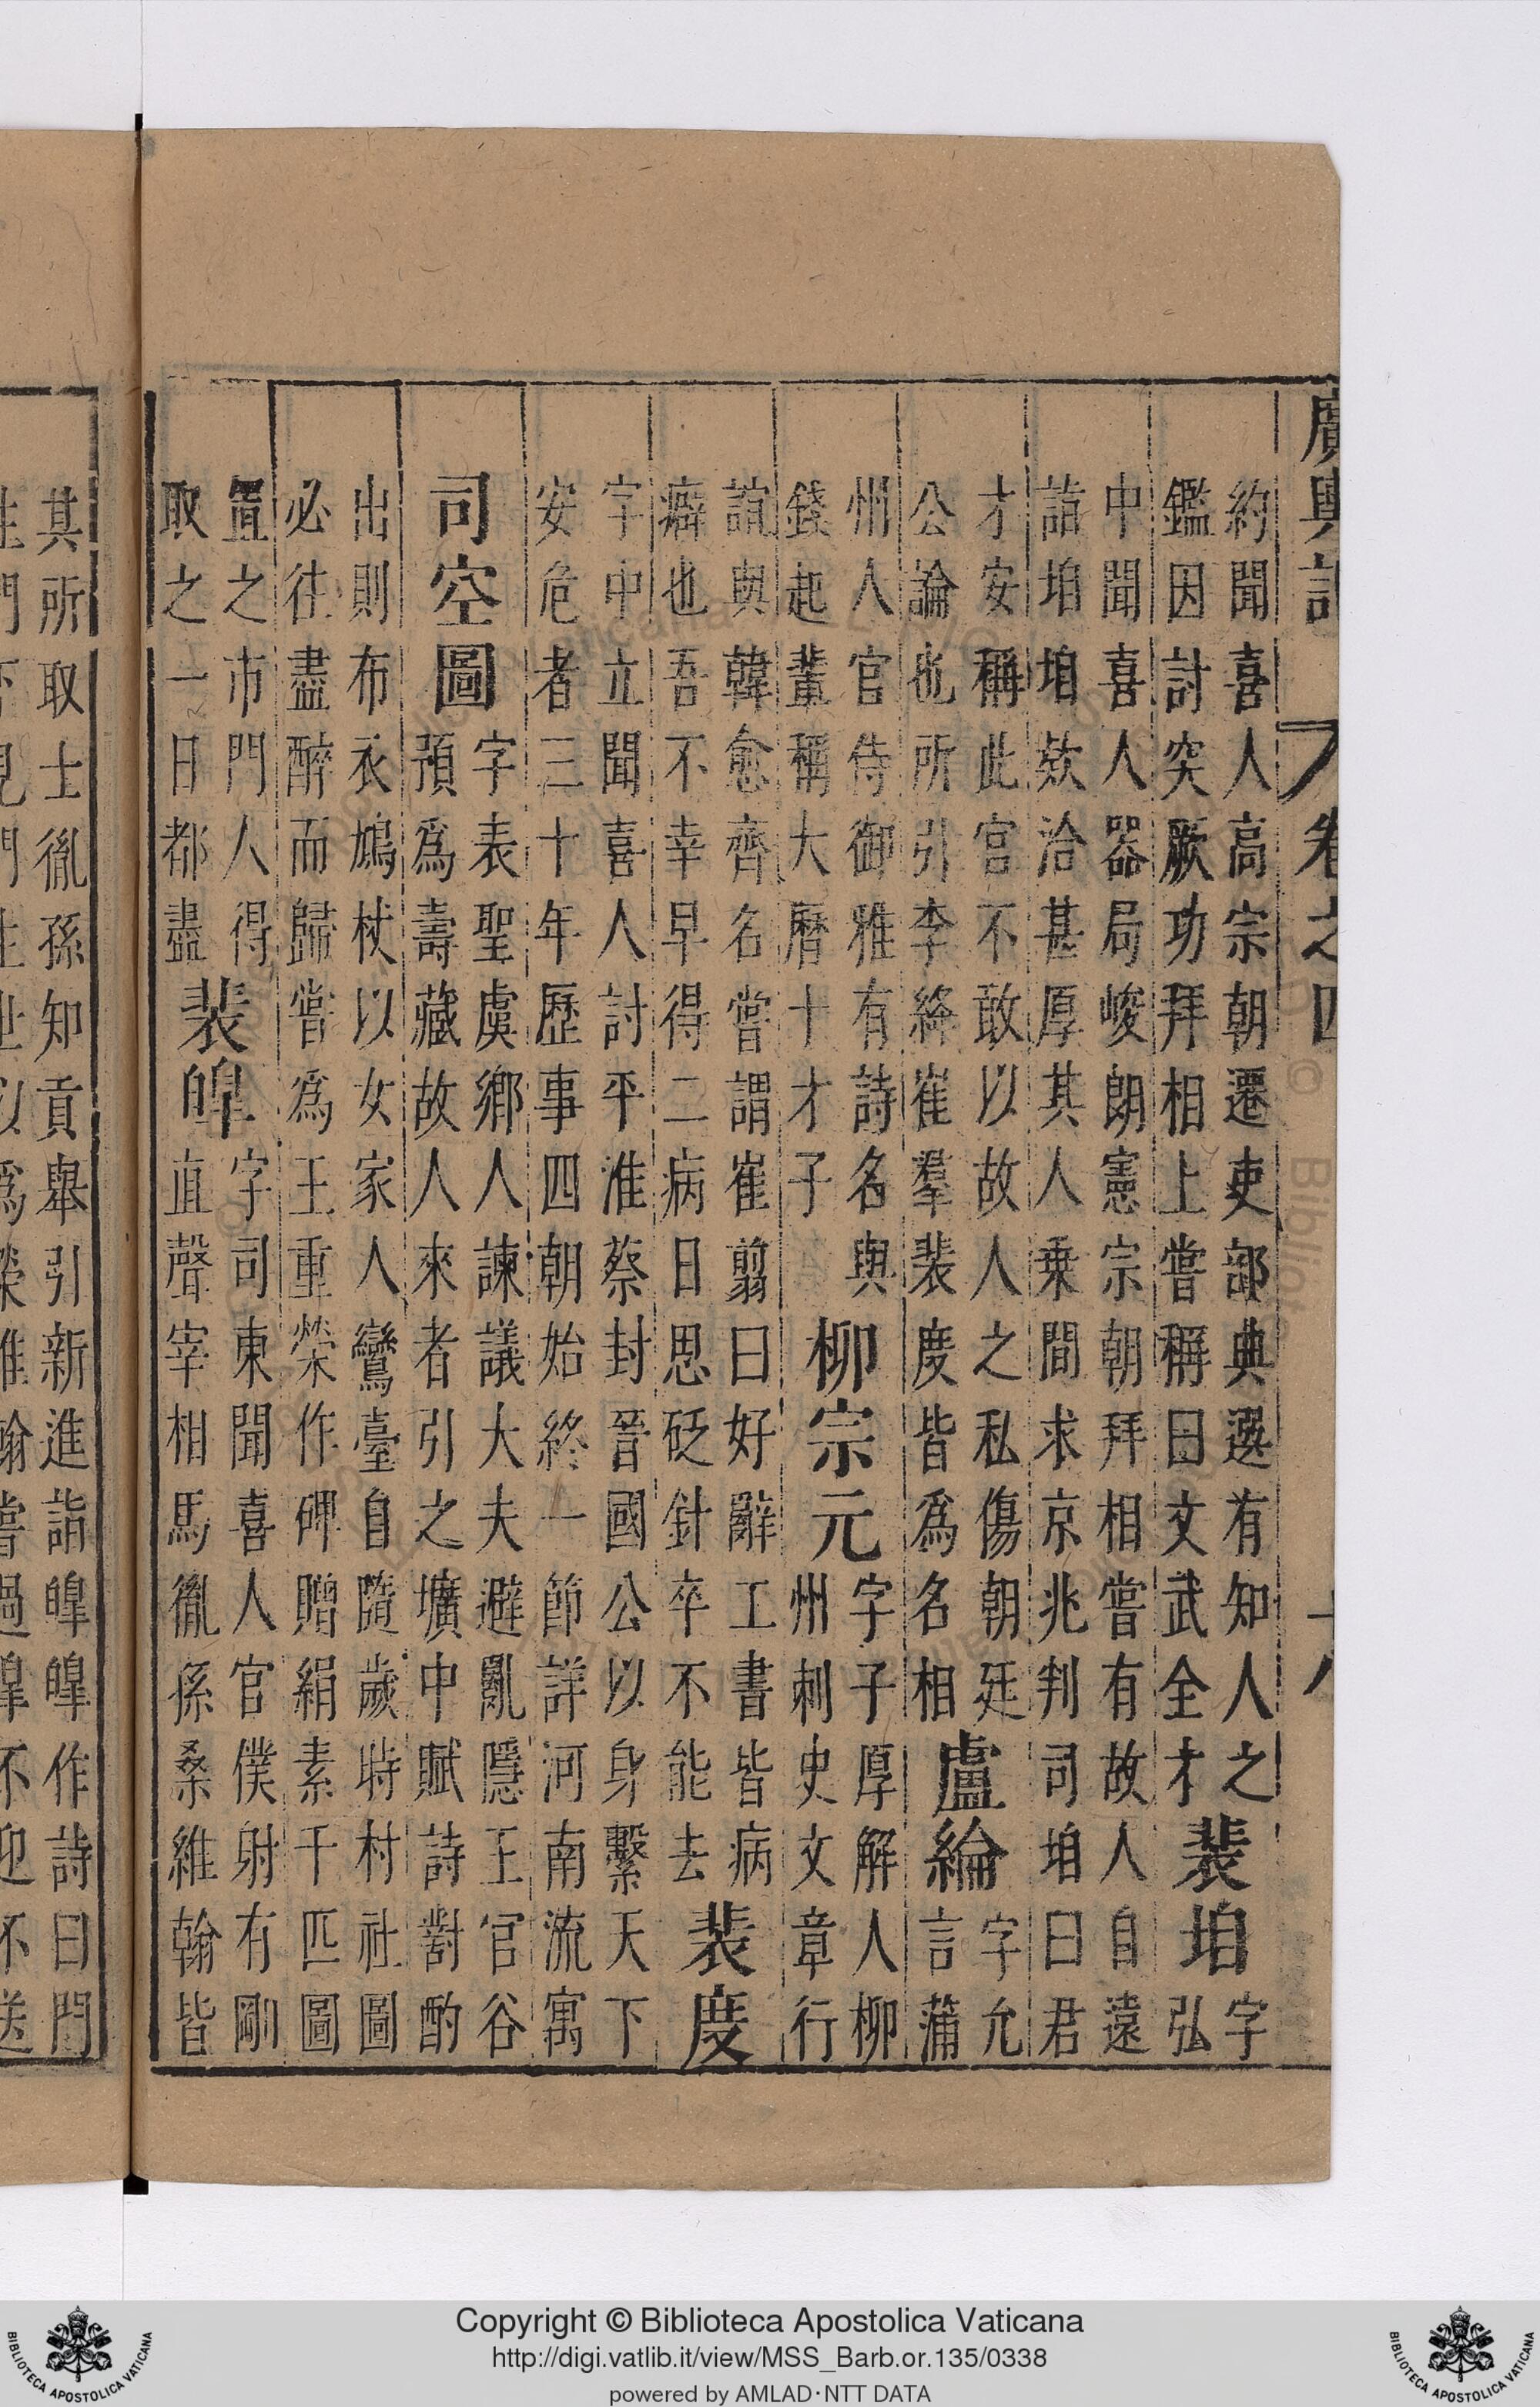 廣輿記 卷之四
約聞喜人高宗朝遷吏部典選有知人之
鑑因討突厥功拜相上嘗稱曰文武全才
裴垍
字
弘
中聞喜人器局峻朗憲宗朝拜相嘗有故人自遠
詣垍垍欵洽甚厚其人乗間求京兆判司垍曰君
才安稱此官不敢以故人之私傷朝廷
公論也所引李絳崔羣裴度皆為名相
盧綸
字允
言蒲
州人官侍御雅有詩名與
錢起輩稱大曆十才子
柳宗元
字子厚解人柳
州刺史文章行
誼與韓愈齊名嘗謂崔翦曰好辭工書皆病
癖也吾不幸早得二病日思砭針卒不能去
裴度
字中立聞喜人討平淮蔡封晉國公以身繫天下
安危者三十年歷事四朝始終一節詳河南流寓
司空圖
字表聖虞鄉人諫議大夫避亂隱王官谷
預爲壽藏故人來者引之壙中賦詩對酌
出則布衣鳩杖以女家人鸞臺自隨歲時村社圖
必往盡醉而歸嘗爲王重榮作碑贈絹素千匹圖
置之市門人得
取之一日都盡
裴皥
字司東聞喜人官僕射有剛
直聲宰相馬胤孫桑維翰皆
其所取士胤孫知貢舉引新進詣皥皥作詩曰門
Copyright © Biblioteca Apostolica Vaticana
http://digi.vatlib.it/view/MSS_Barb.or.135/0338
powered by AMLAD·NTT DATA
BIBLIOTECA APOSTOLICA VATICANA
BIBLIOTECA APOSTOLICA VATICANA